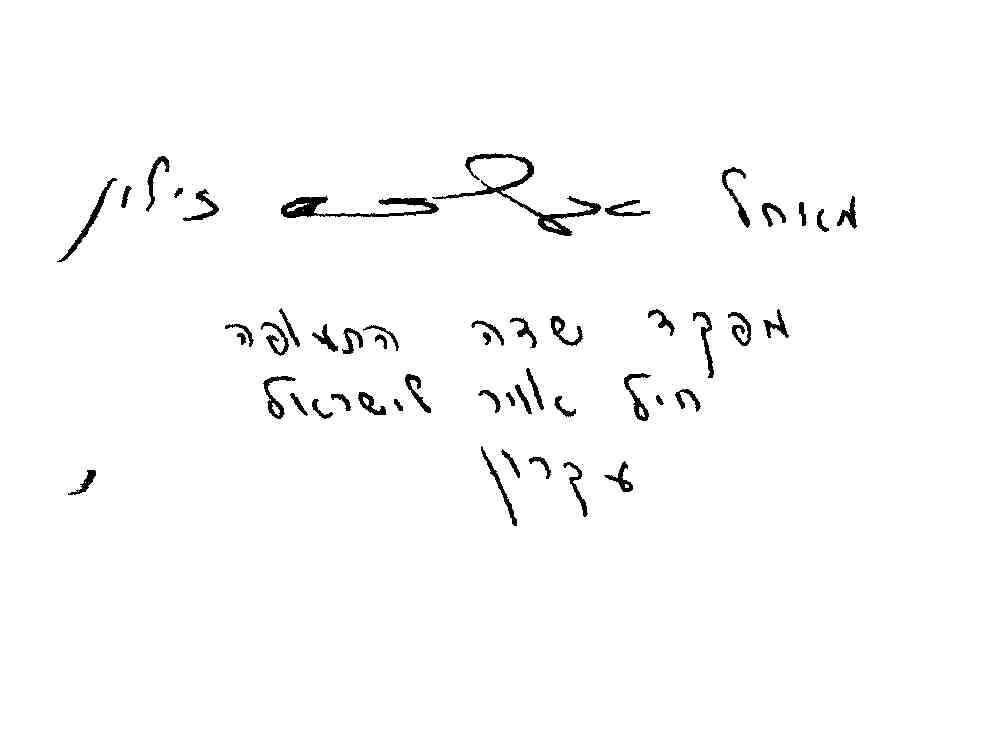 מאוחל בילין
מפקד שדה התעופה
חיל אוויר לישראל
עקרון